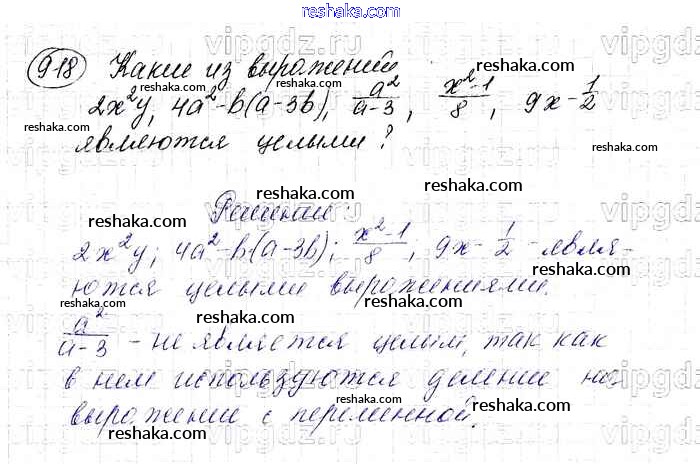 918 Какие из выражений
2x²y, 4a²-b(a-3b), a²/a-3, x²-1/8, 9x-1/2
являются целыми?
Решение:
2x²y; 4a²-b(a-3b); x²-1/8, 9x-1/2 -явля-
ются целыми выражениями.
a²/a-3 - не является целым, так как
в нем используются деление на
выражение с переменной.
reshaka.ru